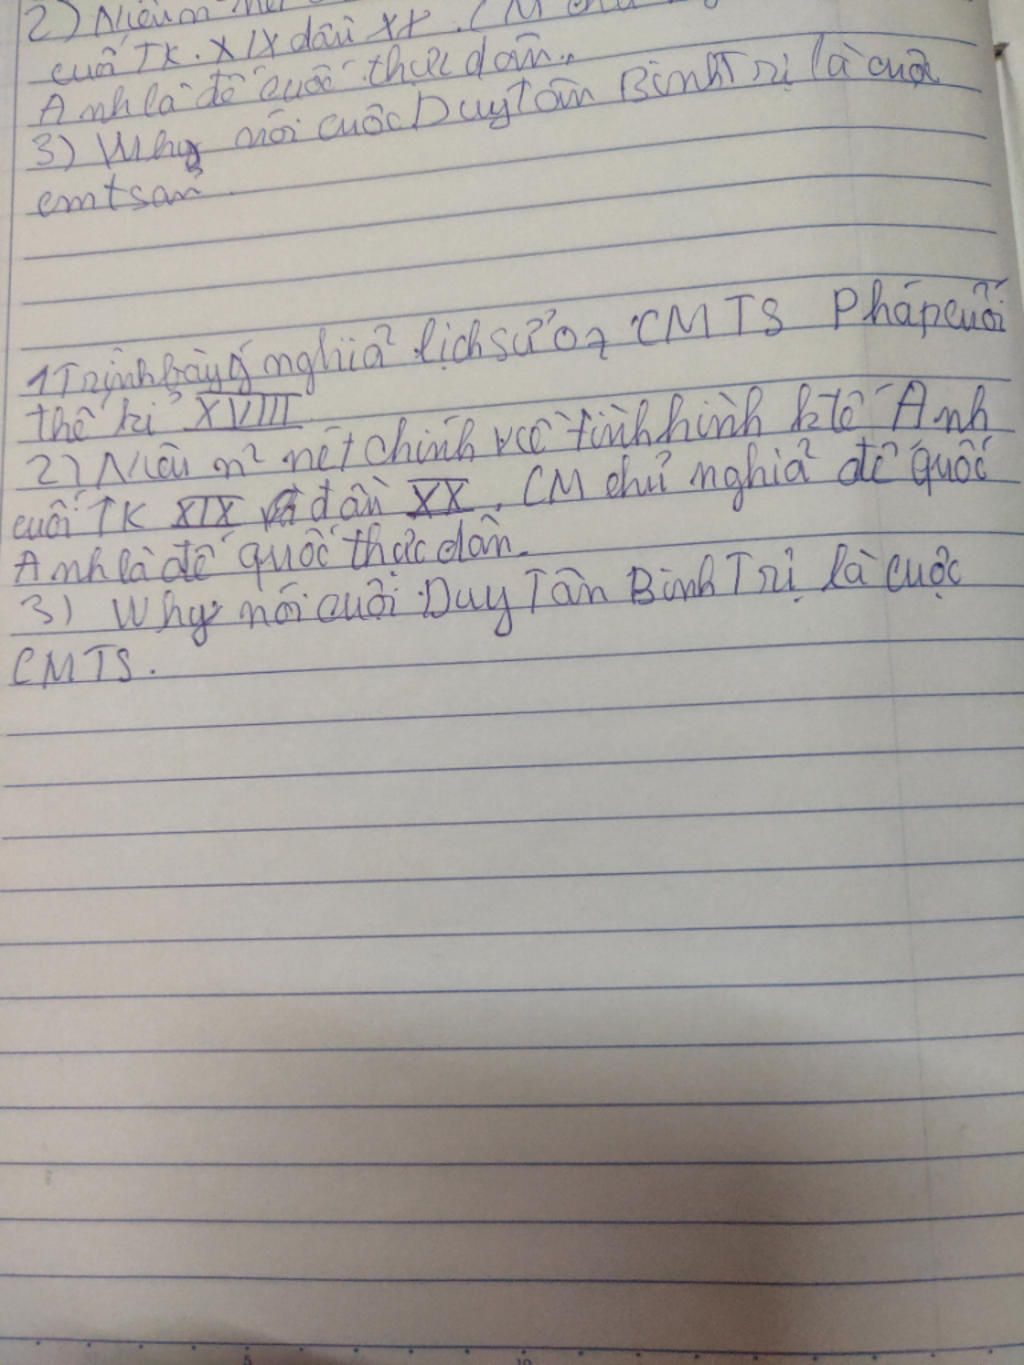 2) Nêu n
cuối TK. XIX đầu XX. CM
Anh là đế quốc thực dân..
3) Why nói cuộc Duy Tân Binh Trị là cuộc
cmtsan
1 Trình bày ý nghiã lịch sử of CMTS Pháp cuối
thế kỉ XVIII
2) Nêu n² nét chính về tình hình ktế Anh
cuối TK XIX đầu XX. CM chủ nghiã đế quốc
Anh là đế quốc thực dân.
3) Why nói cuối Duy Tân Binh Trị là cuộc
CMTS.